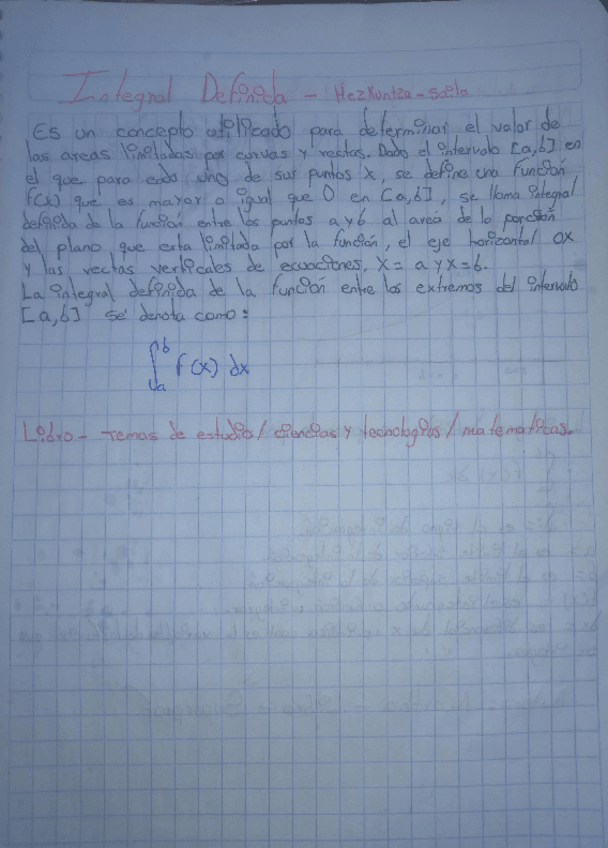 Integral Definida - Hezkuntza - Saila
Es un concepto utilicado para determinar el valor de
las areas limitadas por curvas y rectas. Dado el intervalo [a,b] en
el que para cada uno de sus puntos x, se define una función
f(x) que es mayor o igual que 0 en [a,b], se llama integral
definida de la función entre los puntos a y b al area de la porción
del plano que esta limitada por la función, el eje horizontal OX
y las rectas verticales de ecuaciones, x = a y x = b.
La integral definida de la función entre los extremos del intervalo
[a,b] se denota como:
∫ₐᵇ f(x) dx
Libro - Temas de estudio / ciencias y tecnologías / matematicas.